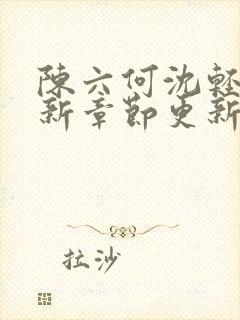 陳六何沈輕
新章節更新
拉沙